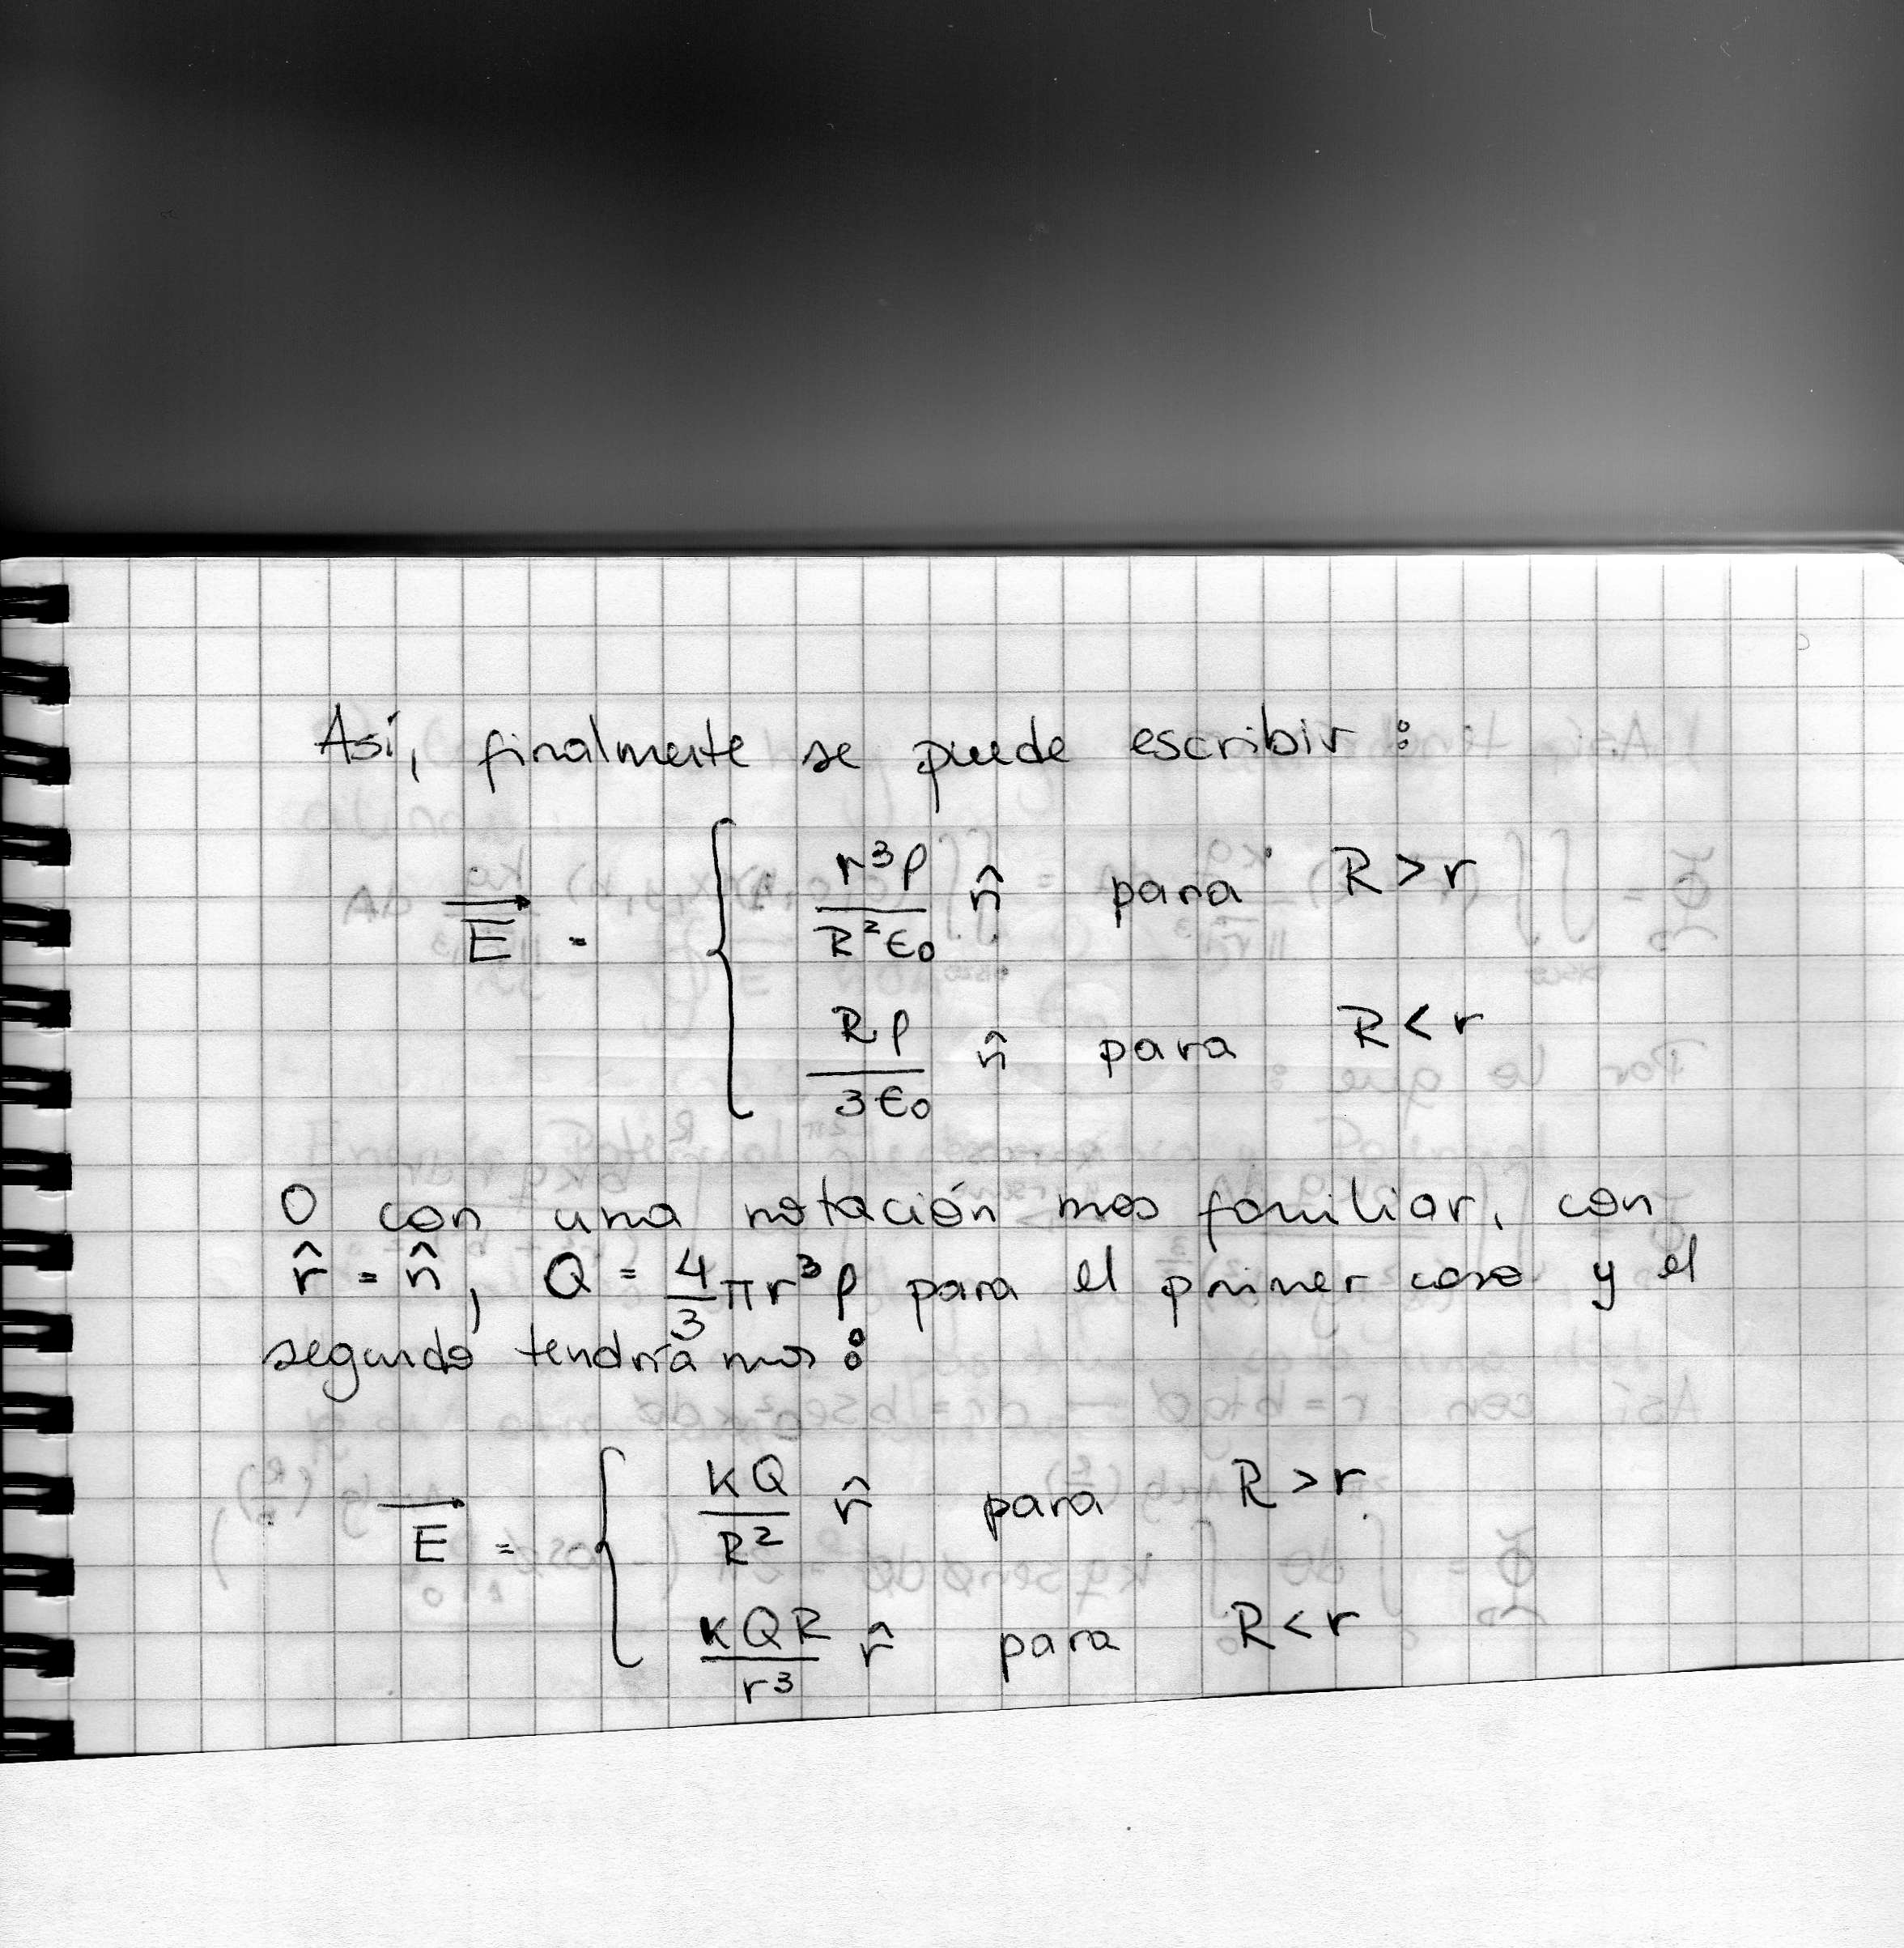 Así, finalmente se puede escribir :
E⃗ = { r³ρ / R²ϵ₀ n̂ para R > r
Rρ / 3ϵ₀ n̂ para R < r
O con una notación mas familiar, con
r̂ = n̂, Q = 4/3 πr³ρ para el primer caso y el
segundo tendríamos :
E⃗ = { KQ / R² r̂ para R > r
KQR / r³ r̂ para R < r